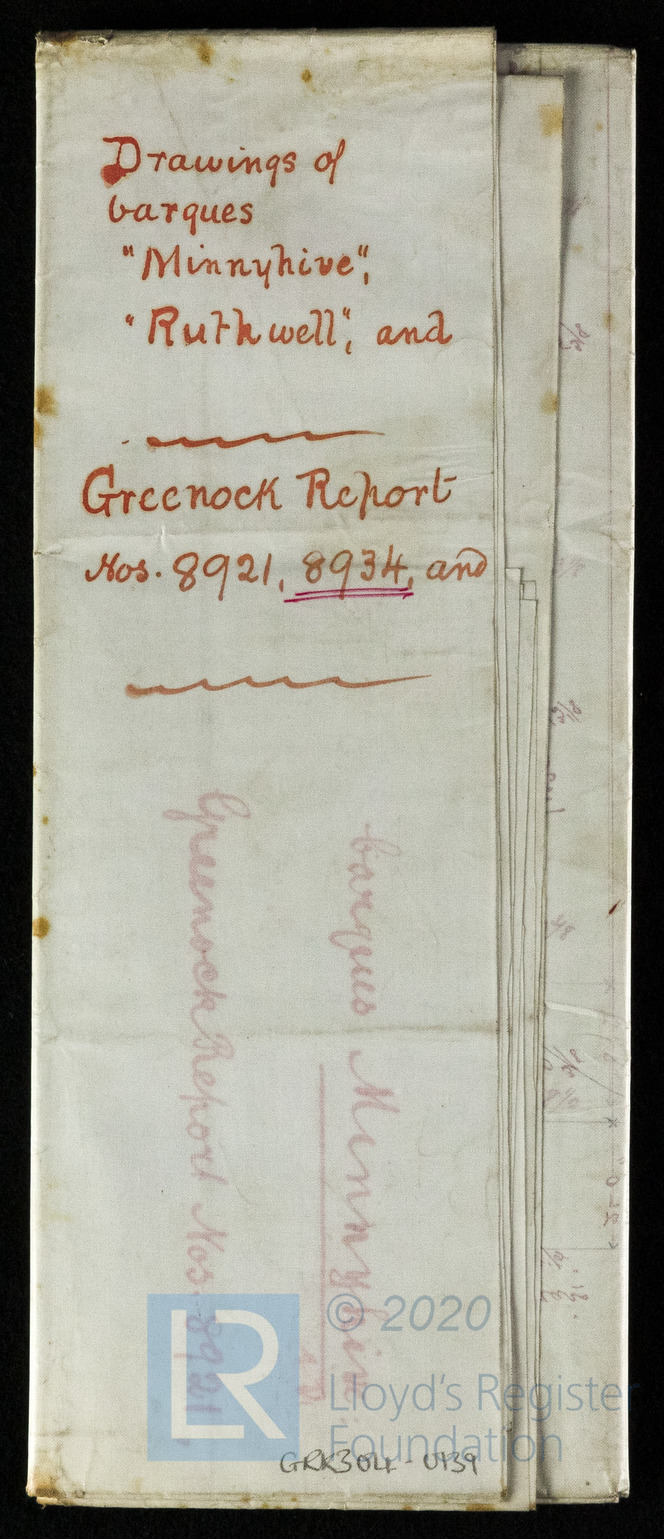 Drawings of
barques
"Minnyhive",
"Ruthwell", and
Greenock Report
Nos. 8921, 8934, and
barques Minnyhive
Greenock Report Nos. 8921
LR
© 2020
Lloyd's Register
Foundation